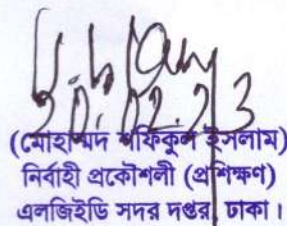 20.02.23
(মোহাম্মদ শফিকুল ইসলাম)
নির্বাহী প্রকৌশলী (প্রশিক্ষণ)
এলজিইডি সদর দপ্তর, ঢাকা।